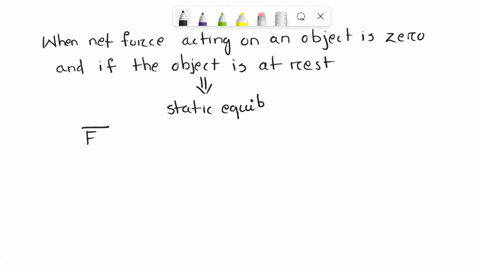 When net force acting on an object is zero
and if the object is at rest
⇓
static equib
F